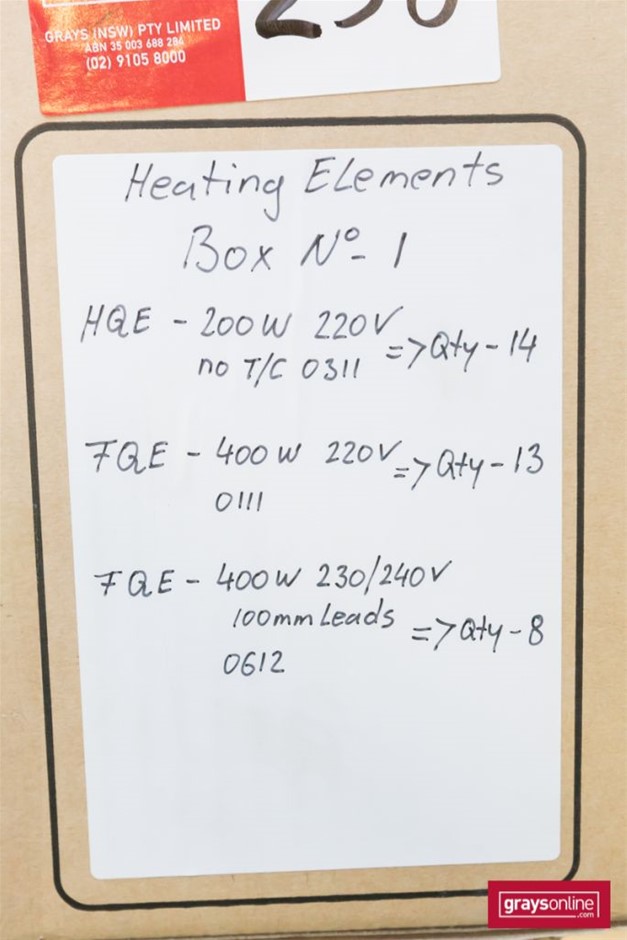 GRAYS (NSW) PTY LIMITED
ABN 35 003 688 284
(02) 9105 8000
Heating Elements
Box Nº- 1
HQE - 200W 220V
no T/C 0311 => Qty - 14
FQE - 400W 220V => Qty - 13
0111
FQE - 400W 230/240V
100mm Leads => Qty - 8
0612
graysonline
.com